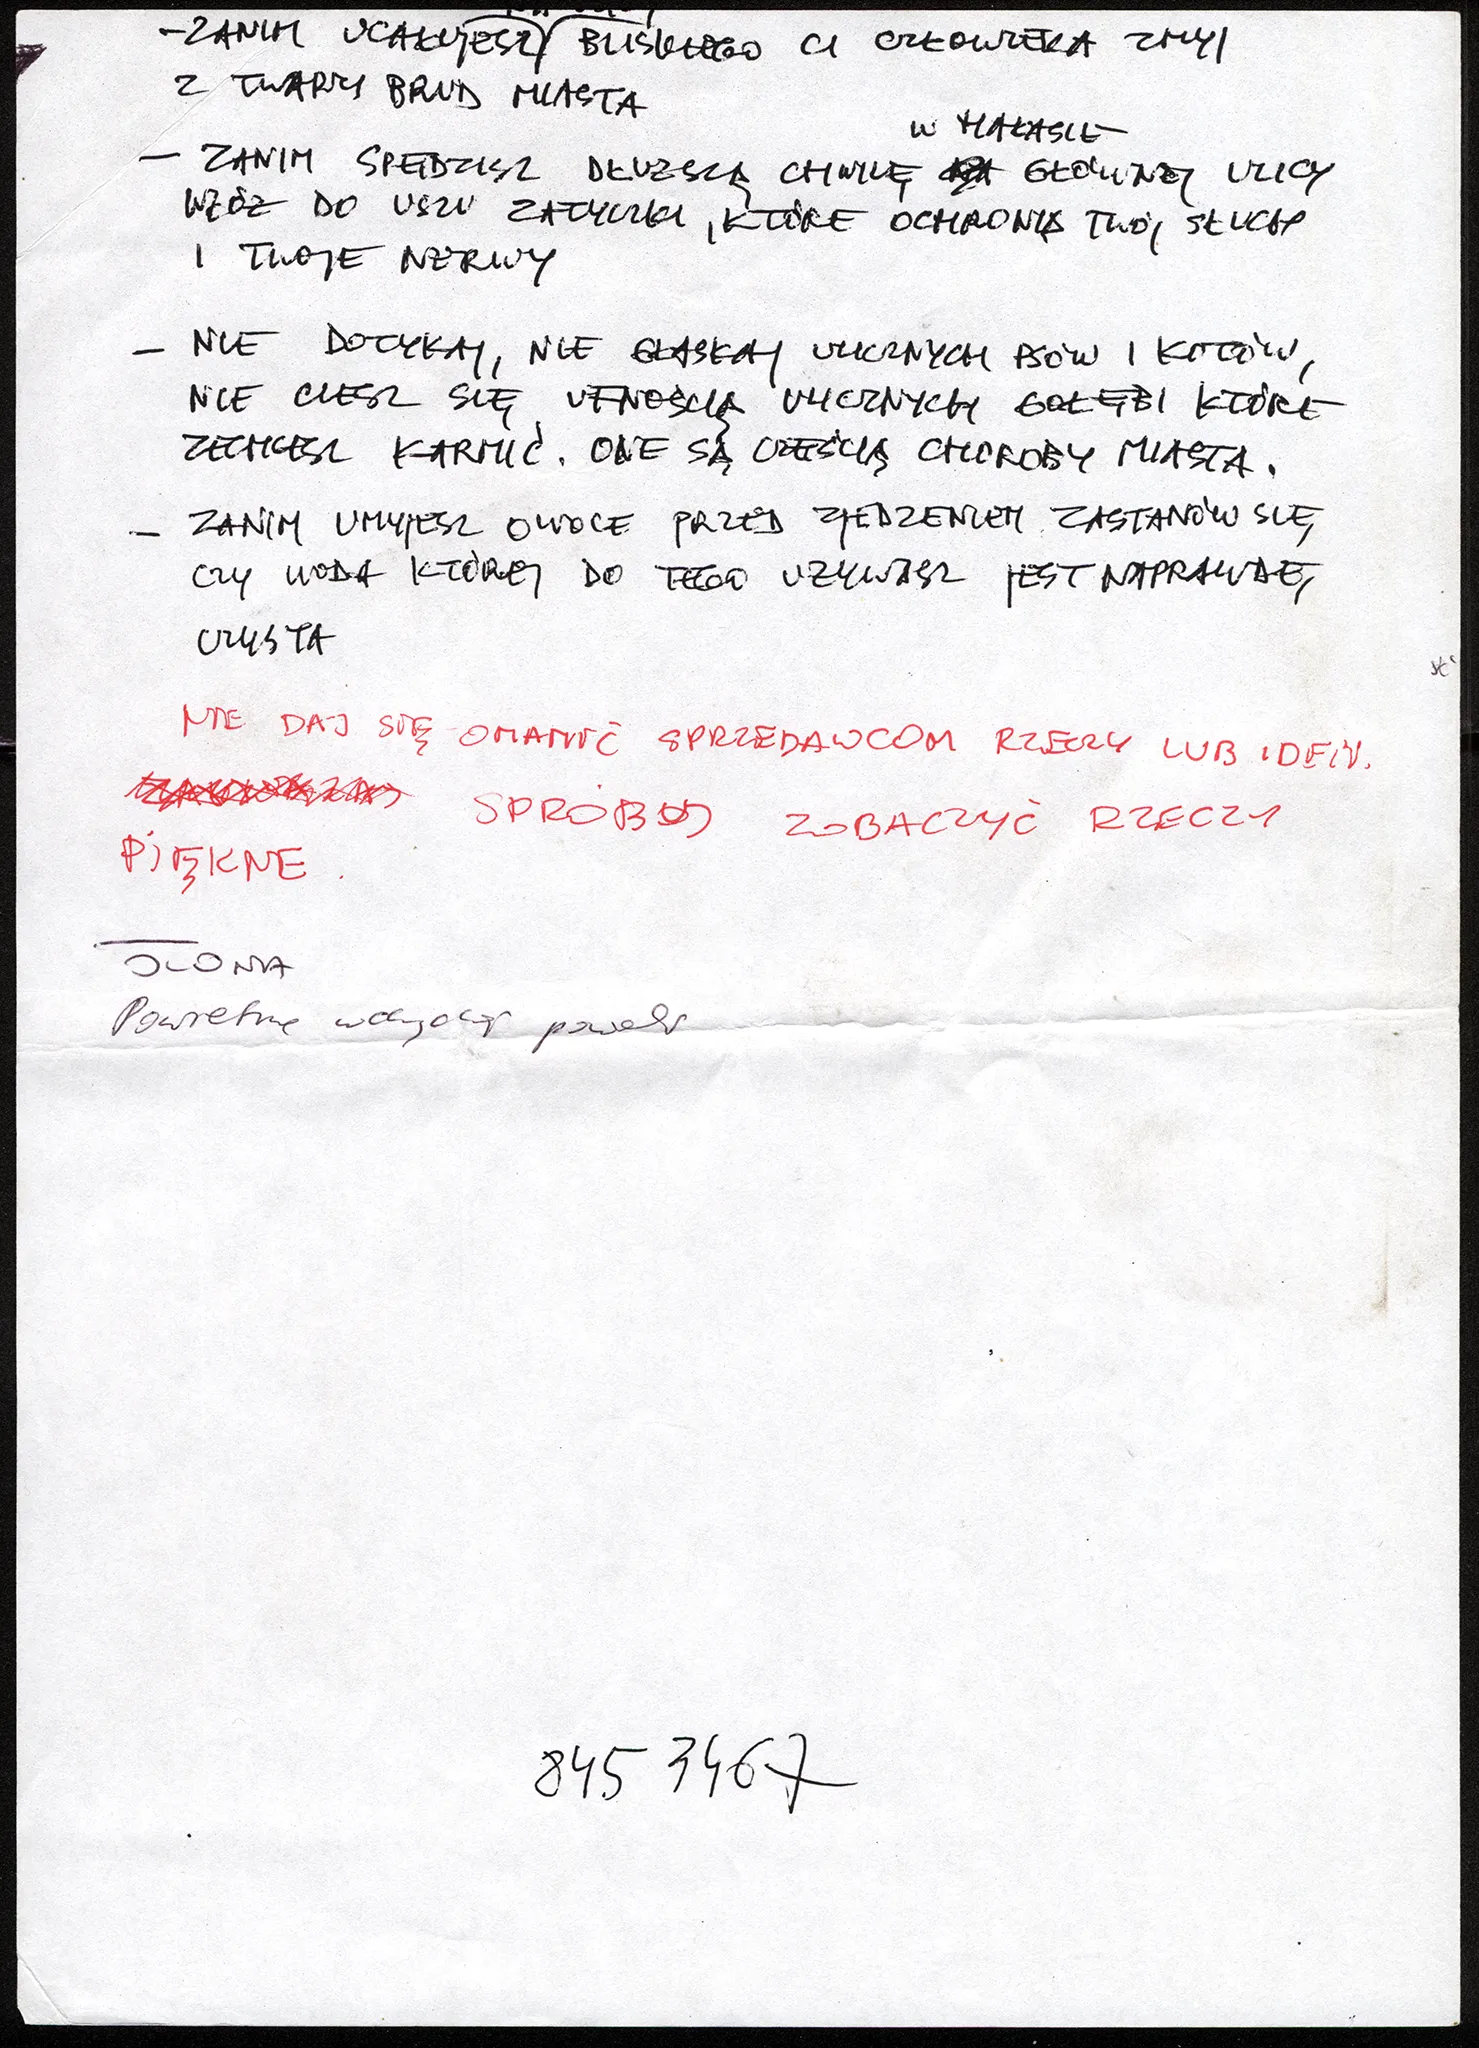 - ZANIM UCAŁUJESZ BLISKIEGO CI CZŁOWIEKA ZMYJ
Z TWARZY BRUD MIASTA
W HAŁASIE
- ZANIM SPĘDZISZ DŁUŻSZĄ CHWILĘ GŁÓWNEJ ULICY
WŁÓŻ DO USZU ZATYCZKI, KTÓRE OCHRONIĄ TWÓJ SŁUCH
I TWOJE NERWY
- NIE DOTYKAJ, NIE GŁASKAJ ULICZNYCH PSÓW I KOTÓW,
NIE CIESZ SIĘ UFNOŚCIĄ ULICZNYCH GOŁĘBI KTÓRE
ZECHCESZ KARMIĆ. ONE SĄ CZĘŚCIĄ CHOROBY MIASTA.
- ZANIM UMYJESZ OWOCE PRZED ZJEDZENIEM ZASTANÓW SIĘ
CZY WODA KTÓREJ DO TEGO UŻYWASZ JEST NAPRAWDĘ
CZYSTA
NIE DAJ SIĘ OMAMIĆ SPRZEDAWCOM RZECZY LUB IDEIV.
SPRÓBUJ ZOBACZYĆ RZECZY
PIĘKNE.
ILONA
845 3467